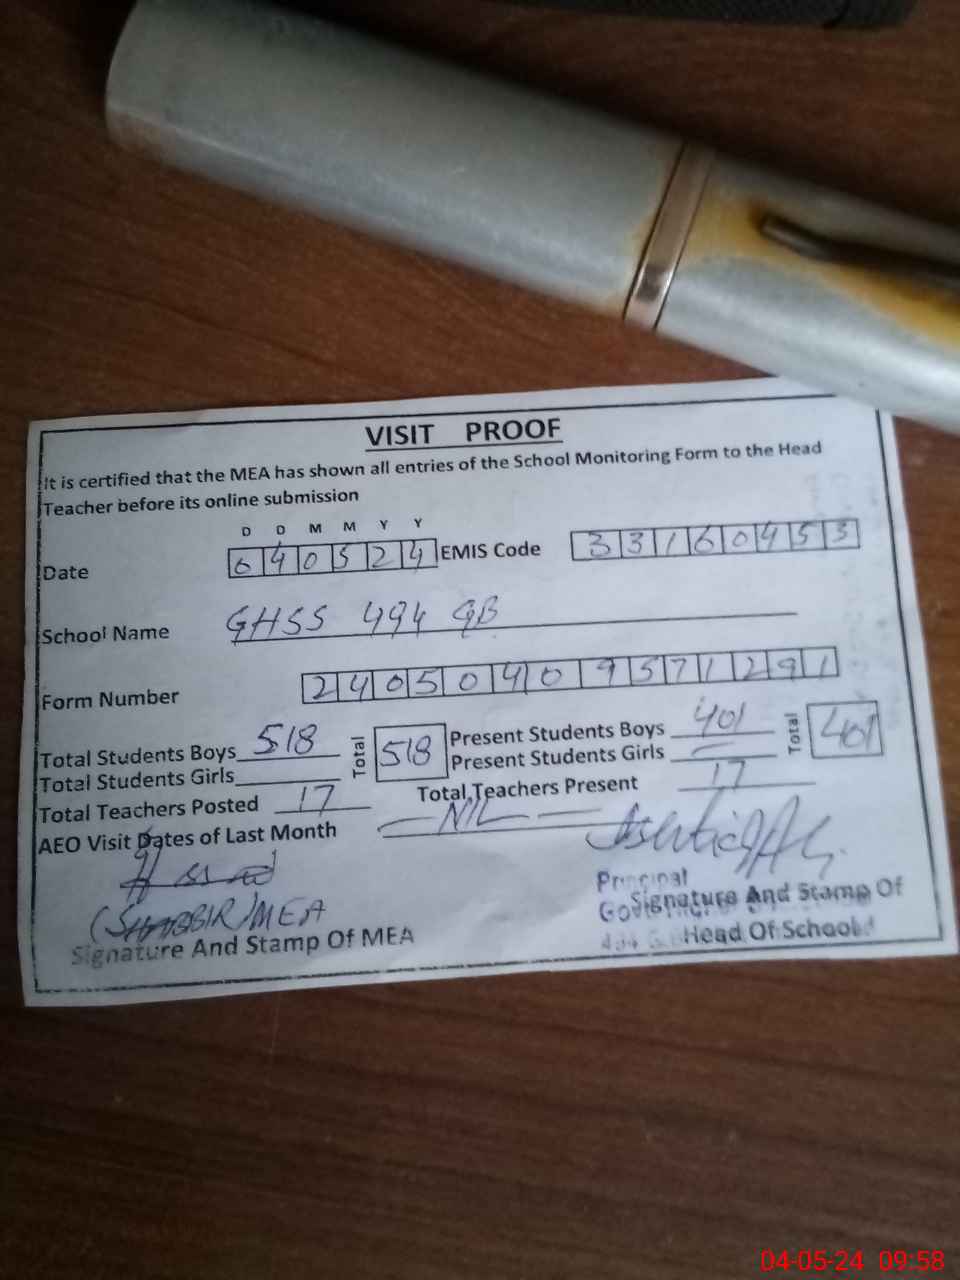 VISIT PROOF
It is certified that the MEA has shown all entries of the School Monitoring Form to the Head
Teacher before its online submission
D D M M Y Y
Date 040524 EMIS Code 33160453
School Name GHSS 494 GB
Form Number 24050409571291
Total Students Boys 518 Total 518 Present Students Boys 401 Total 401
Total Students Girls Present Students Girls —
Total Teachers Posted 17 Total Teachers Present 17
AEO Visit Dates of Last Month — NIL —
(SHABBIR) MEA
Signature And Stamp Of MEA
Principal
Signature And Stamp Of
Head Of School
04-05-24 09:58